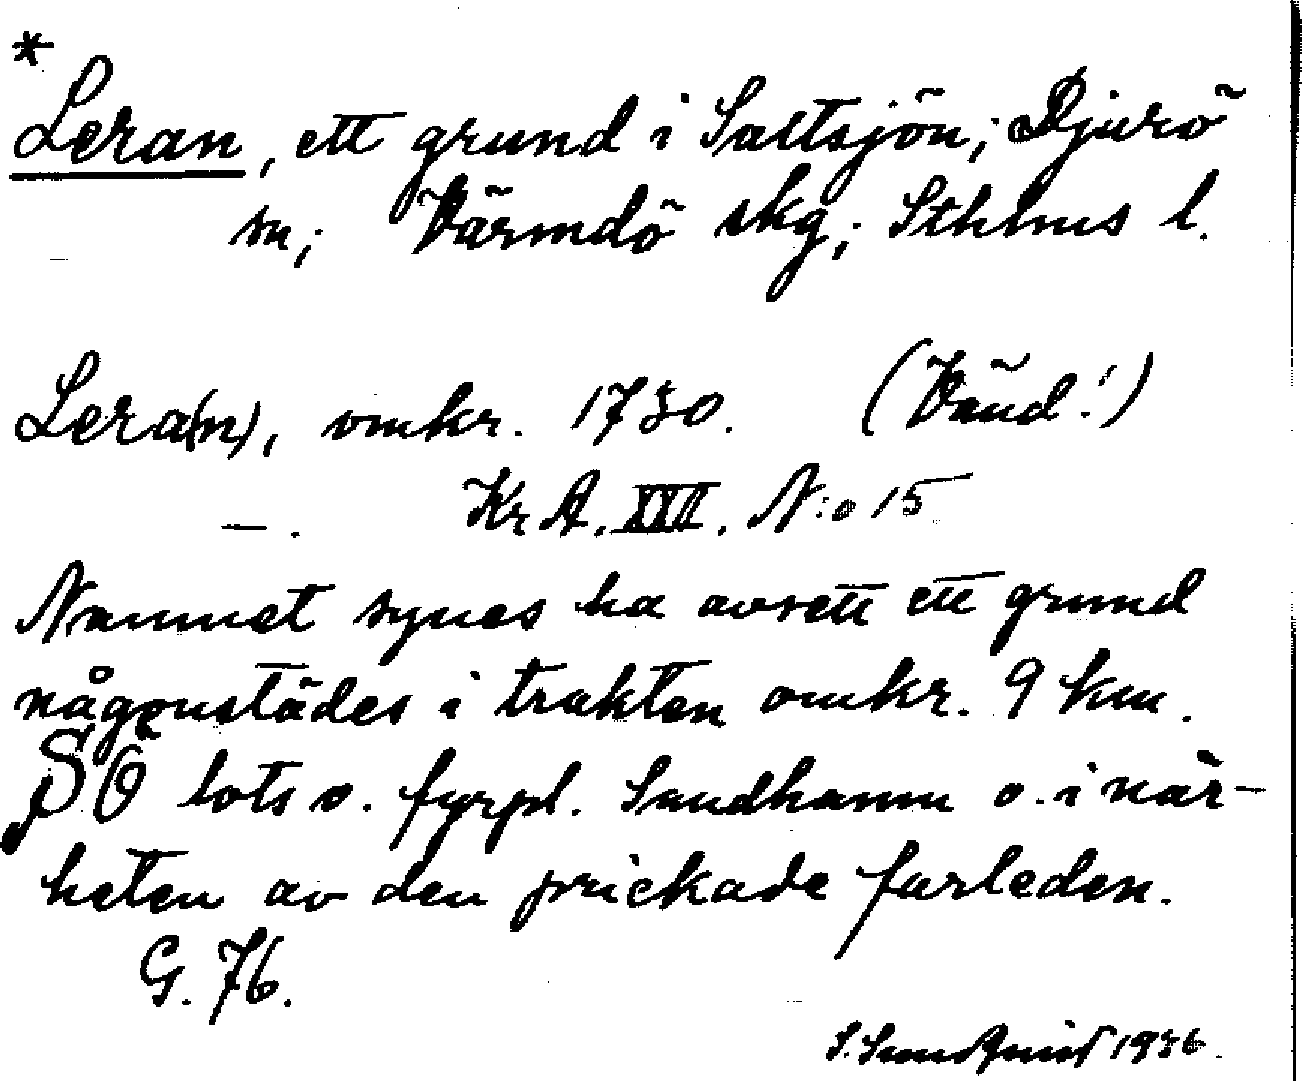 *
Leran, ett grund i Saltsjön; Djurö
sn; Värmdö skg; Sthlms l.
Lera(n), omkr. 1730. (Vänd!)
—. KrA. XIII. N:o 15
Namnet synes ha avsett ett grund
någonstädes i trakten omkr. 9 km.
SÖ lots o. fyrpl. Sandhamn o. i när-
heten av den prickade farleden.
G. 76.
S. Sundqvist 1936.